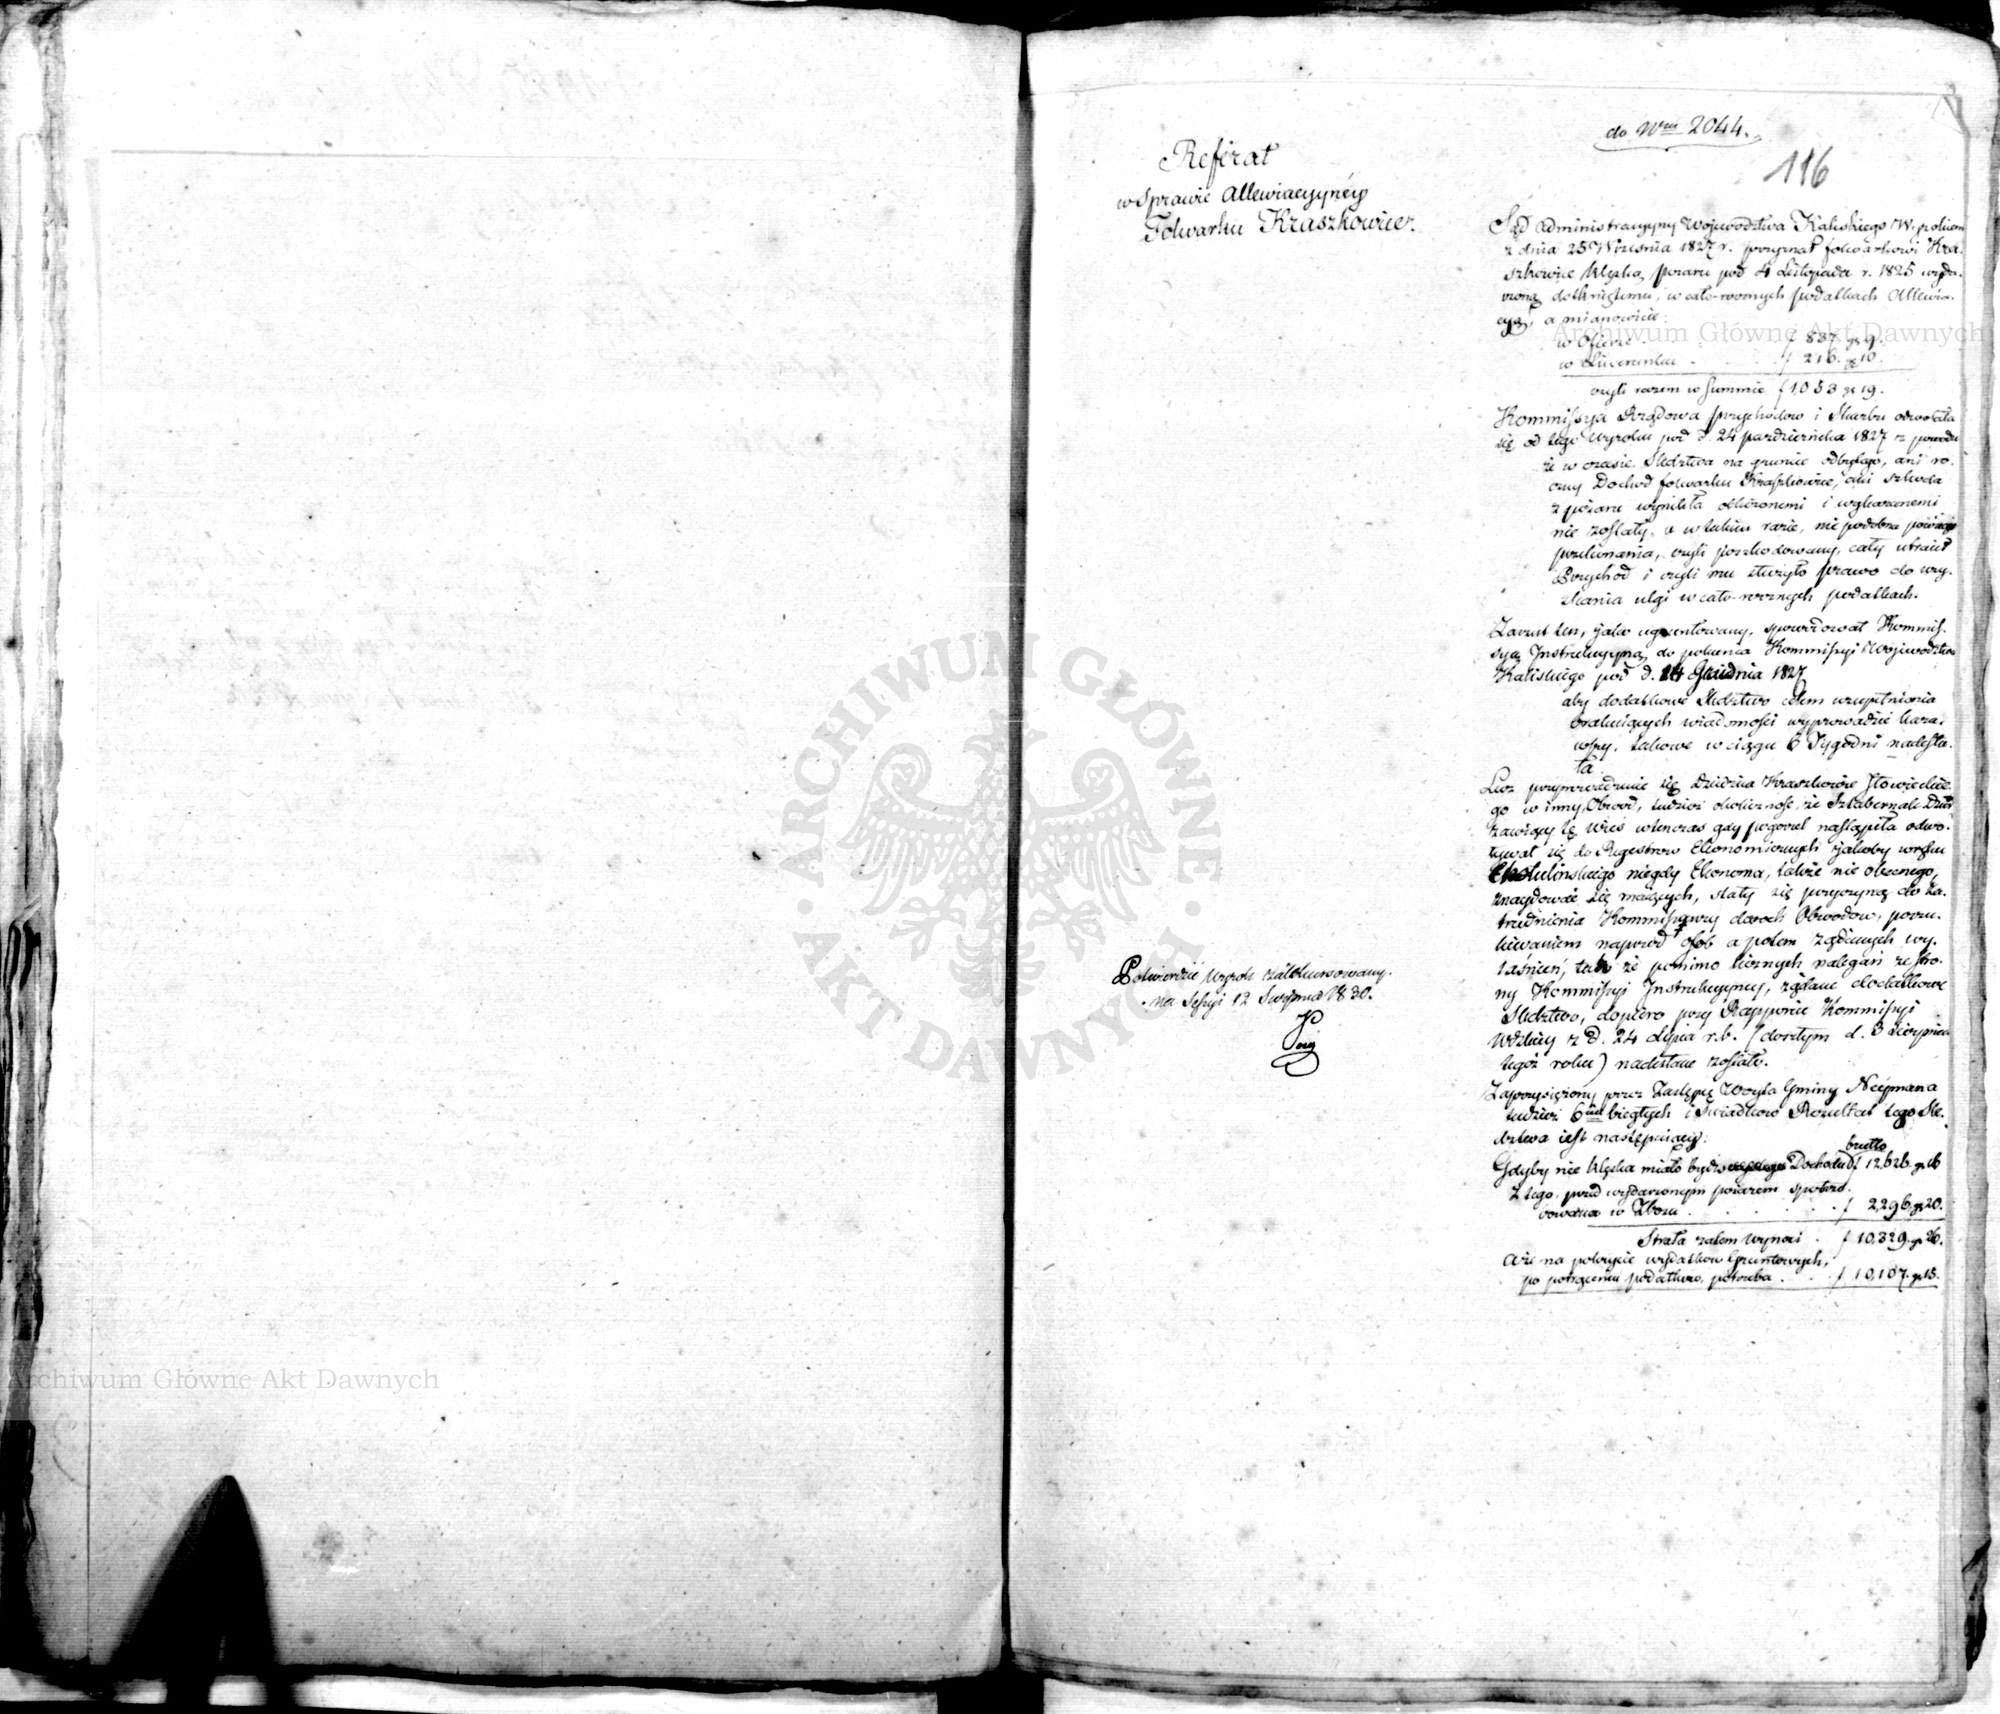 do Nru 2044.
116
Referat
w sprawie Allewiacyynéy
Folwarku Kraszkowice.
Sąd Administracyyny Województwa Kaliskiego Wyrokiem
z dnia 25 Września 1827 r. przyznał folwarkowi Kra-
szkowice klęską pożaru pod 4 Listopada r. 1825 wyda-
rzoną dotkniętemu, w cało-rocznych podatkach Allewia-
cyą, a mianowicie:
w Ofierze f 837 gr 9.
w Liwerunku . . . f 216. gr 10.
czyli razem w Summie f 1,053 gr 19.
Kommissya Rządowa Przychodow i Skarbu odwołała
się od tego Wyroku pod d. 24 Pazdziernika 1827 z powodu
że w czasie Sledztwa na gruncie odbytego, ani ro-
czny Dochod folwarku Kraszkowice, ani szkoda
z pożaru wynikła obliczonemi i wykazanemi
nie zostały, a w takim razie, nie podobna powziąść
przekonania, czyli poszkodowany, cały utracił
Przychod i czyli mu służyło prawo do uzy-
skania ulgi w cało-rocznych podatkach.
Zarzut ten, jako ugruntowany, spowodował Kommis-
syą Instrukcyyną do polecenia Kommissyi Województwa
Kaliskiego pod d. 14 Grudnia 1827
aby dodatkowe Sledztwo celem uzupełnienia
brakuiących wiadomości wyprowadzić kaza-
wszy, takowe w ciągu 6 Tygodni nadesła-
ła
Lecz przeprowadzenie się Dziedzica Kraszkowic Słowieckie-
go w inny Obwod, tudzież okoliczność, że Sztabernak Dzier-
zawiący tę Wieś wtenczas gdy pogorzel nastąpiła odwo-
ływał się do Regestrow Ekonomicznych jakoby w ręku
niegdy Ekonoma, także nie obecnego,
znaydować się maiących, stały się przyczyną do za-
trudnienia Kommissarzy dwoch Obwodow, poszu-
kiwaniem naprzod osob a potem żądanych wy-
iaśnień, tak że pomimo licznych nalegań ze stro-
ny Kommissyi Instrukcyyney, żądane dodatkowe
Sledztwo, dopiero przy Rapporcie Kommissyi
Wdzkiey z d. 24 Lipca r. b. (doszłym d. 3 Sierpnia
tegoż roku) nadesłane zostało.
Zaprzysiężony przez Zastępcę Woyta Gminy Neymana
tudzież 6ciu biegłych i Swiadkow Rezultat tego Sle-
dztwa iest następuiący:
brutto
Gdyby nie klęska miało bydź Dochodu f 12,626. gr 16
Z tego, przed wydarzonym pożarem spotrze-
bowano w Zbożu . . . . f 2,296. gr 20.
Strata zatem wynosi . f 10,329. gr 26.
A że na pokrycie wydatkow Gruntowych,
po potrąceniu podatkow, potrzeba . . . f 10,107. gr 15.
Potwierdzić Wyrok zaskarżony.
na Sessyi 12 Sierpnia 1830.